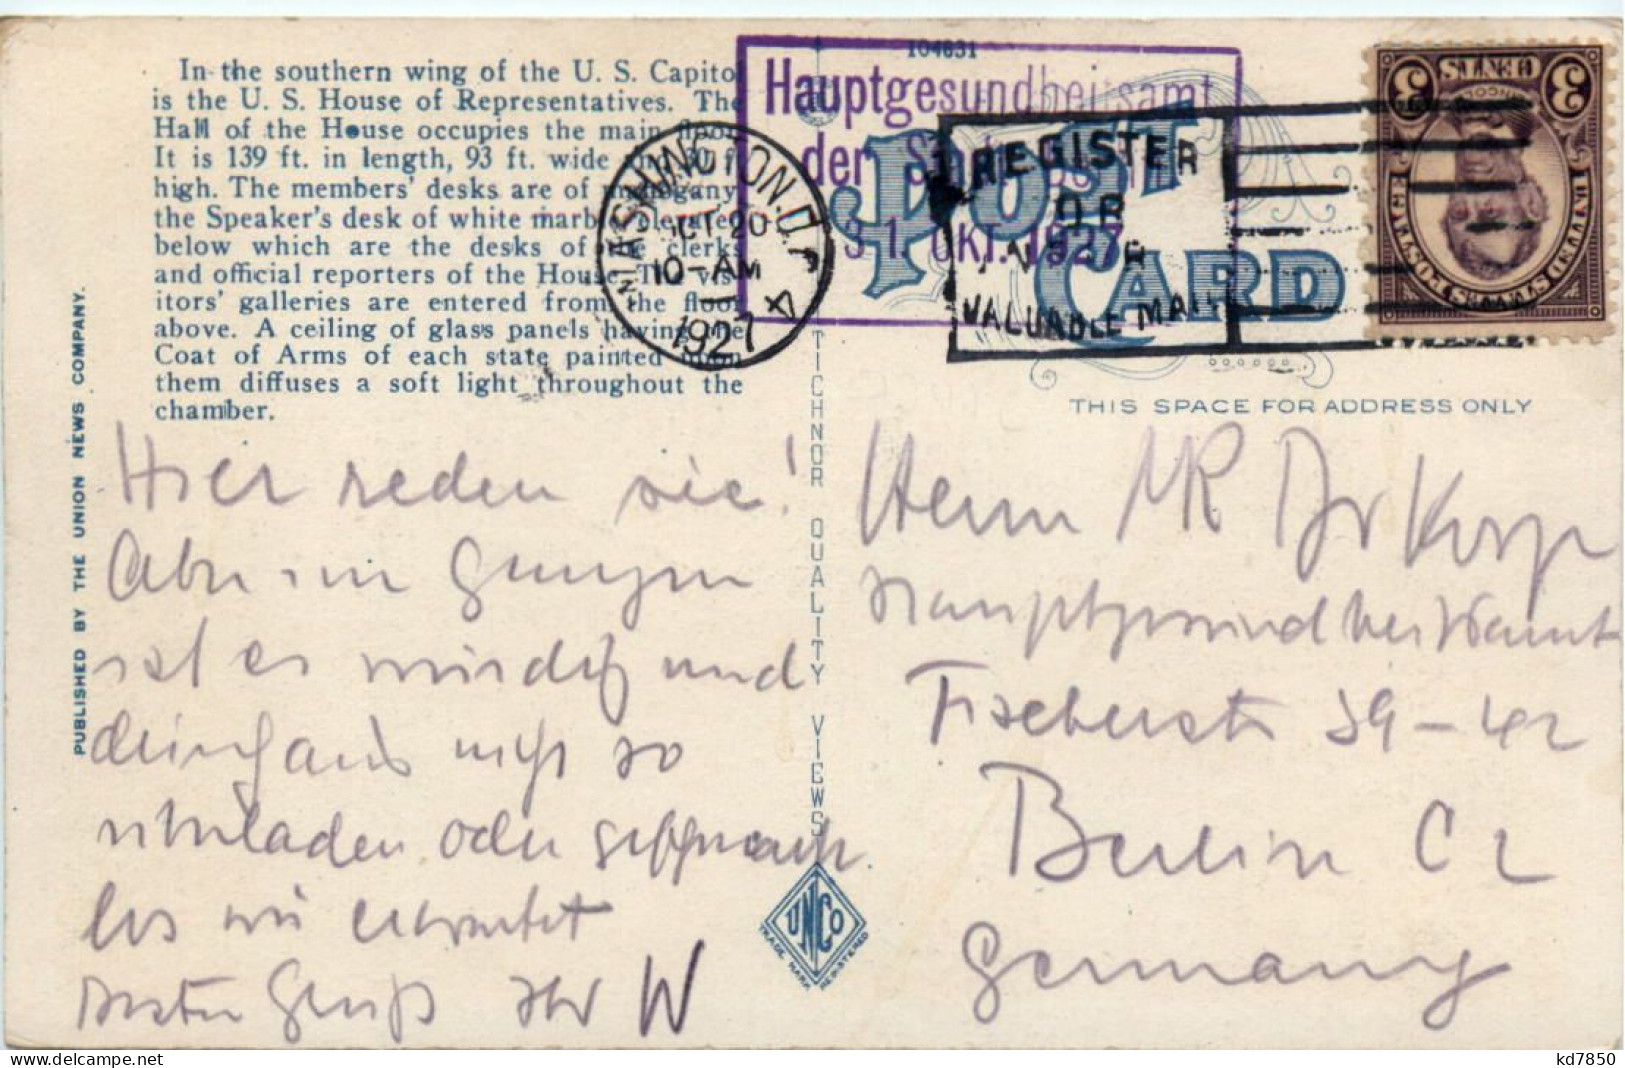 In the southern wing of the U. S. Capitol
is the U. S. House of Representatives. The
Hall of the House occupies the main floor.
It is 139 ft. in length, 93 ft. wide and 30 ft.
high. The members' desks are of mahogany,
the Speaker's desk of white marble elevated
below which are the desks of the clerks
and official reporters of the House. The vis-
itors' galleries are entered from the floor
above. A ceiling of glass panels having the
Coat of Arms of each state painted upon
them diffuses a soft light throughout the
chamber.
PUBLISHED BY THE UNION NEWS COMPANY.
104831
Hauptgesundheitsamt
der Stadt
31. OKT. 1927
WASHINGTON, D.C.
OCT 20
10-AM
1927
4
REGISTER
OR
INSURE
VALUABLE MAIL
POST
CARD
3 CENTS 3
LINCOLN
UNITED STATES POSTAGE
THIS SPACE FOR ADDRESS ONLY
TICHNOR QUALITY VIEWS
UNCO
TRADE MARK REGISTERED
Hier reden sie!
Aber im Ganzen
ist es würdig und
nicht so
überladen oder geschmack
los wie erwartet
Besten Gruß Ihr W
Herrn MR Dr Korp
Hauptgesundheitsamt
Fischerstr 39-42
Berlin C 2
Germany
kd7850